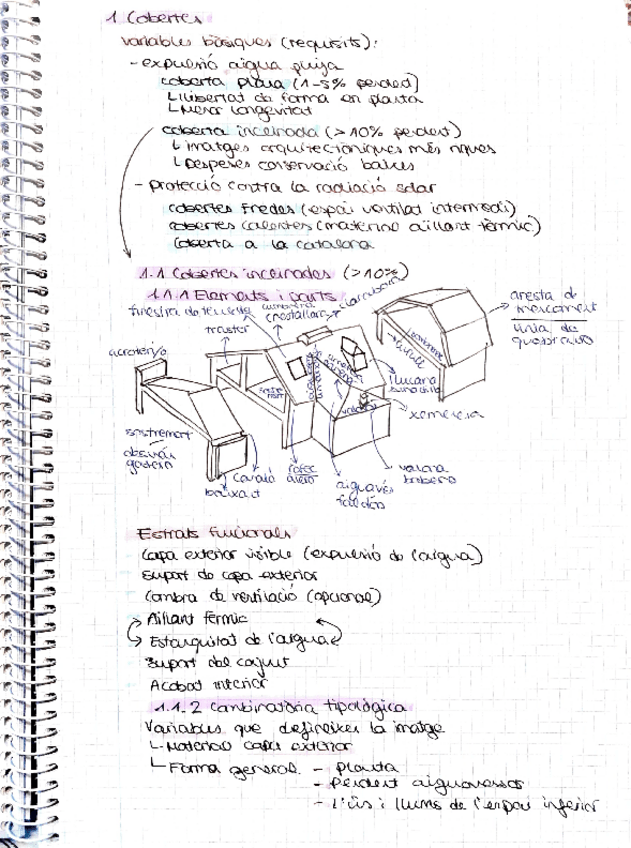 1. Cobertes
variables bàsiques (requisits):
- expulsió aigua pluja
coberta plana (1-5% pendent)
↳ llibertat de forma en planta
↳ Menor longevitat
coberta inclinada (>10% pendent)
↳ imatges arquitectòniques més riques
↳ Despeses conservació baixes
- protecció contra la radiació solar
cobertes fredes (espai ventilat intermedi)
cobertes calentes (material aïllant tèrmic)
Coberta a la catalana
1.1 Cobertes inclinades (>10%)
1.1.1 Elements i parts
finestra de teulada
carenera
traster
acroteri
aresta de
línia de
llucana
xemeneia
capçal
ràfec
aiguavés
Estrats funcionals
Capa exterior visible (expulsió de l'aigua)
Suport de capa exterior
Cambra de ventilació (opcional)
Aïllant tèrmic
Estanquitat de l'aigua
Suport del conjunt
Acabat interior
1.1.2 Combinatòria tipològica
Variables que defineixen la imatge
↳ Material capa exterior
↳ Forma general - planta
- Pendent aiguavessos
- L'ús i llums de l'espai inferior